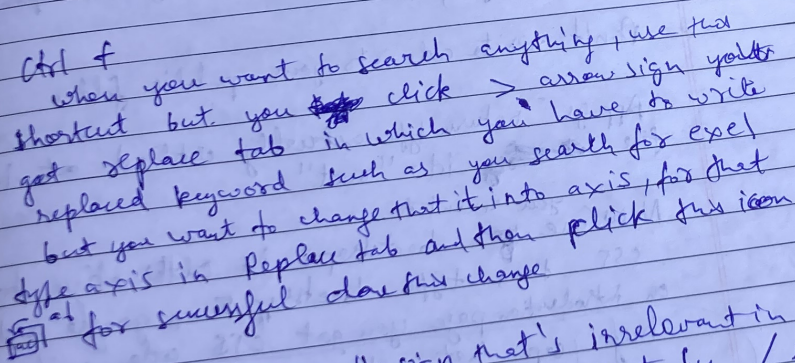 Ctrl f
when you want to search anything, use this
shortcut but you click > arrow sign you
got replace tab in which you have to write
replaced keyword such as you search for exel
but you want to change that it into axis, for that
type axis in Replace tab and then click this icon
for sucessful done this change
that's irrelevant in